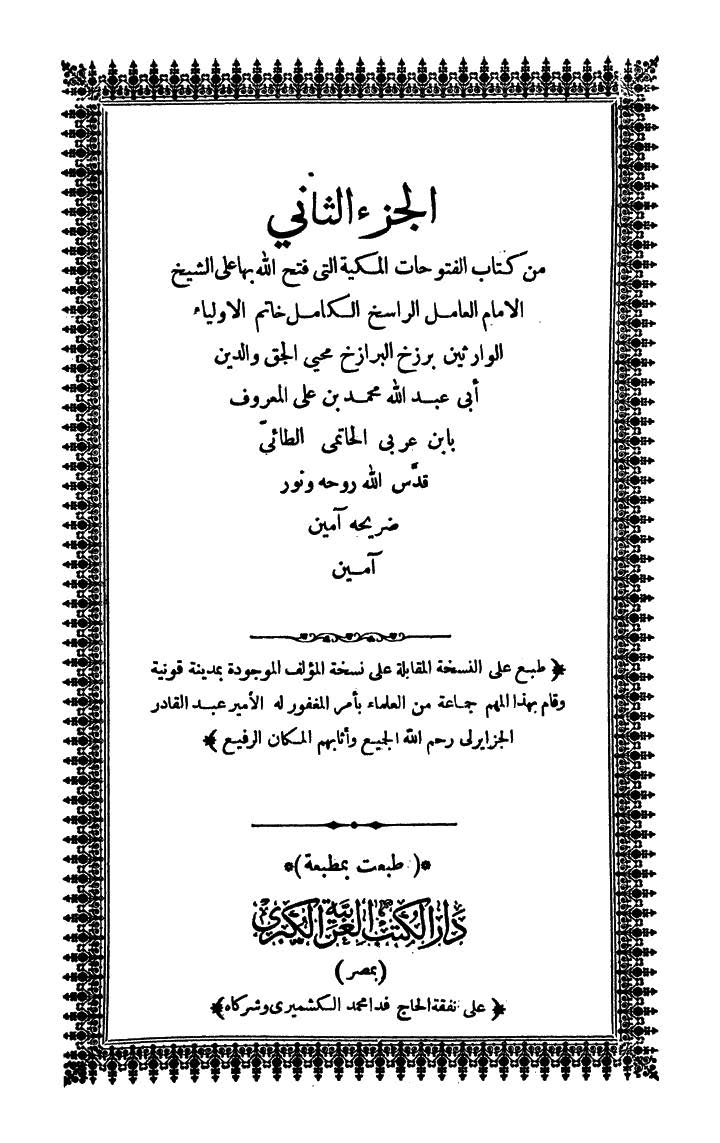 الجزء الثاني
من كتاب الفتوحات المكية التى فتح الله بها على الشيخ
الامام العامل الراسخ الكامل خاتم الاولياء
الوارثين برزخ البرازخ محيي الحق والدين
أبى عبد الله محمد بن على المعروف
بابن عربى الحاتمى الطائيّ
قدَّس الله روحه ونور
ضريحه آمين
آمين
﴿ طبع على النسخة المقابلة على نسخة المؤلف الموجودة بمدينة قونية
وقام بهذا المهم جماعة من العلماء بأمر المغفور له الأمير عبد القادر
الجزايرلى رحم الله الجميع وأثابهم المكان الرفيع ﴾
*( طبعت بمطبعة )*
دار الكتب العربية الكبرى
(بمصر)
﴿ على نفقة الحاج فدا محمد الكشميرى وشركاه ﴾